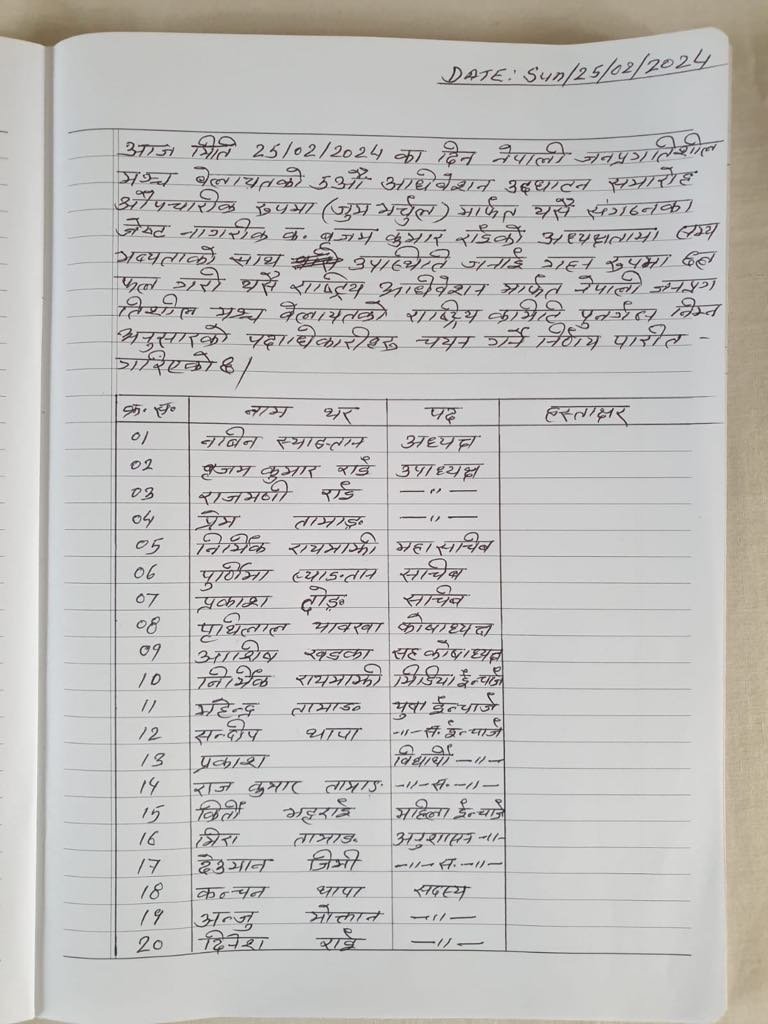 DATE: Sun/25/02/2024
आज मिति 25/02/2024 का दिन नेपाली जनप्रगतिशील
मञ्च बेलायतको 5औं अधिवेशन उद्घाटन समारोह
औपचारीक रुपमा (जुम भर्चुल) मार्फत यसै संगठनका
जेष्ट नागरीक क. बृजम कुमार राईको अध्यक्षतामा
भव्यताको साथ उपस्थिति जनाई गहन रुपमा छल
फल गरी यसै राष्ट्रिय अधिवेशन मार्फत नेपाली जनप्रग
तिशील मञ्च बेलायतको राष्ट्रिय कमिटि पुनर्गठन निम्न
अनुसारको पदाधिकारीहरु चयन गर्ने निर्णय पारीत -
गरिएको छ।
क्र. स. नाम थर पद हस्ताक्षर
01 नबिन स्याङतान अध्यक्ष
02 बृजम कुमार राई उपाध्यक्ष
03 राजमणी राई —〃—
04 प्रेम तामाङ —〃—
05 निर्भिक रायमाझी महासचिब
06 पुर्णिमा स्याङतान सचिब
07 प्रकाश दोङ सचिब
08 पृथिलाल याक्खा कोषाध्यक्ष
09 आशिष खडका सह कोषाध्यक्ष
10 निर्भिक रायमाझी मिडिया ईन्चार्ज
11 महेन्द्र तामाङ युवा ईन्चार्ज
12 सन्दीप थापा -〃- स. ईन्चार्ज
13 प्रकाश विद्यार्थी -〃-
14 राज कुमार तामाङ -〃- स. -〃-
15 किर्ती भट्टराई महिला ईन्चार्ज
16 मिरा तामाङ अनुशासन -〃-
17 देउमान जिमी -〃- स. -〃-
18 कन्चन थापा सदस्य
19 अन्जु मोक्तान —〃—
20 दिनेश राई —〃—